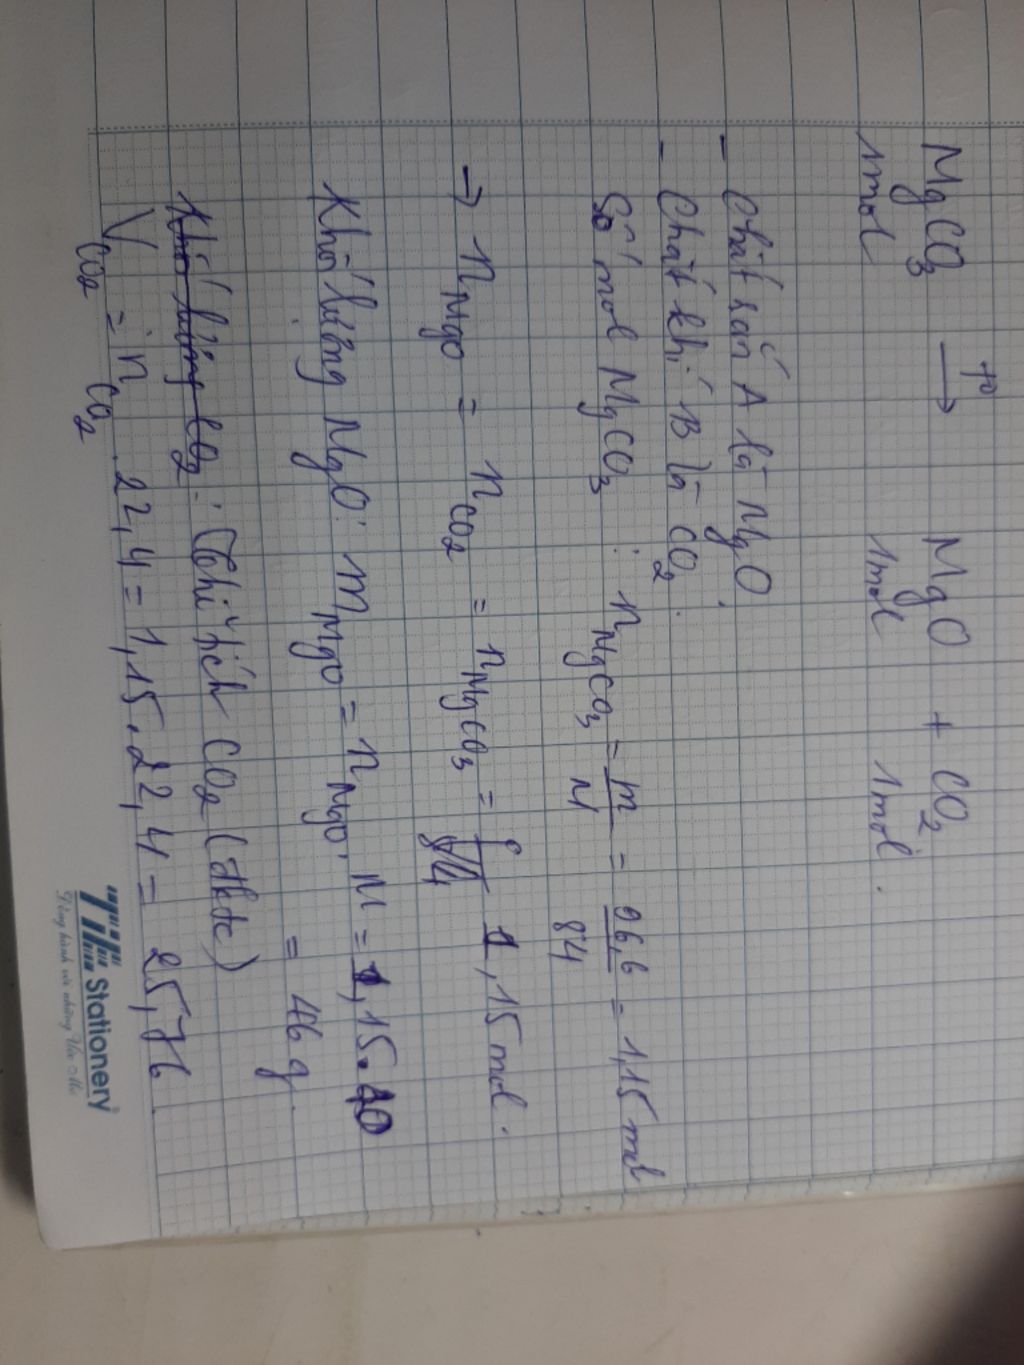 MgCO3 –t°→ MgO + CO2
1mol 1mol 1mol.
- Chất rắn A là MgO.
- Chất khí B là CO2.
Số mol MgCO3: nMgCO3 = m/M = 96,6/84 = 1,15 mol
→ nMgO = nCO2 = nMgCO3 = 1,15 mol.
Khối lượng MgO: mMgO = nMgO. M = 1,15.40
= 46 g.
Khối lượng CO2: Thể tích CO2 (đktc)
VCO2 = nCO2 . 22,4 = 1,15.22,4 = 25,76
TIẾN Stationery